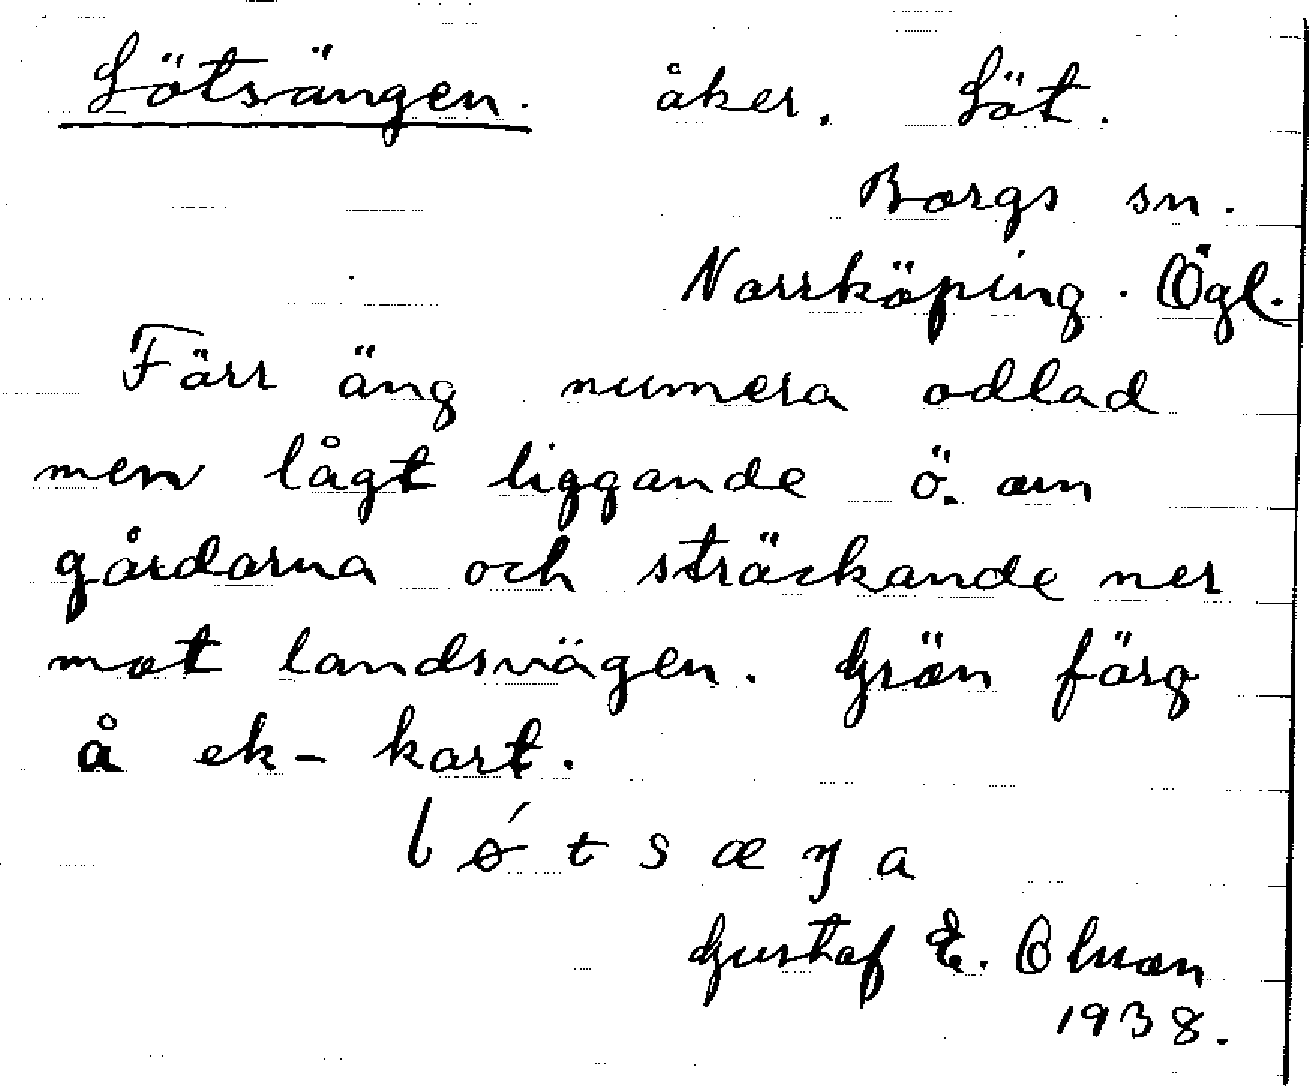 Lötsängen. åker. Löt.
Borgs sn.
Norrköping. Ögl.
Förr äng numera odlad
men lågt liggande ö. om
gårdarna och sträckande ner
mot landsvägen. Grön färg
å ek-kart.
l ǿ t s æ ŋ a
Gustaf E. Olson
1938.